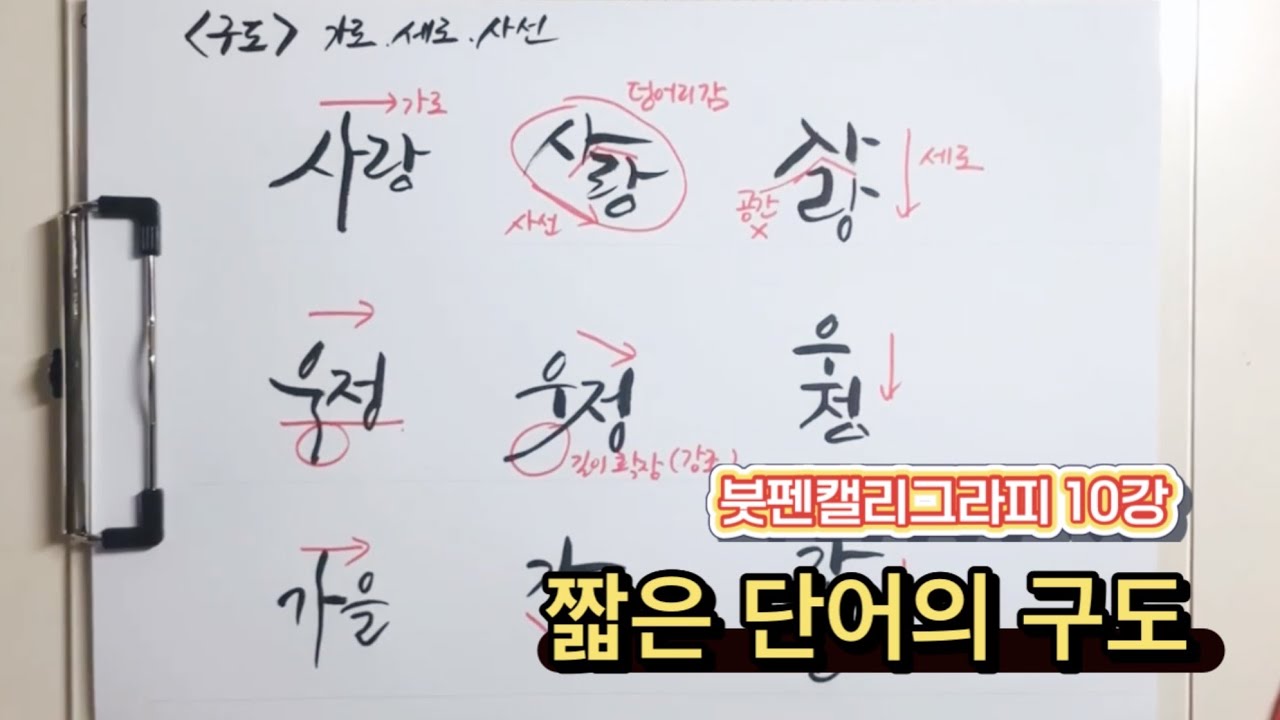 <구도> 가로.세로.사선
가로
덩어리감
사랑
사랑
사랑
세로
사선
공간
x
우정
우정
우정
길이 확장 (강조)
붓펜캘리그라피 10강
가을
짧은 단어의 구도